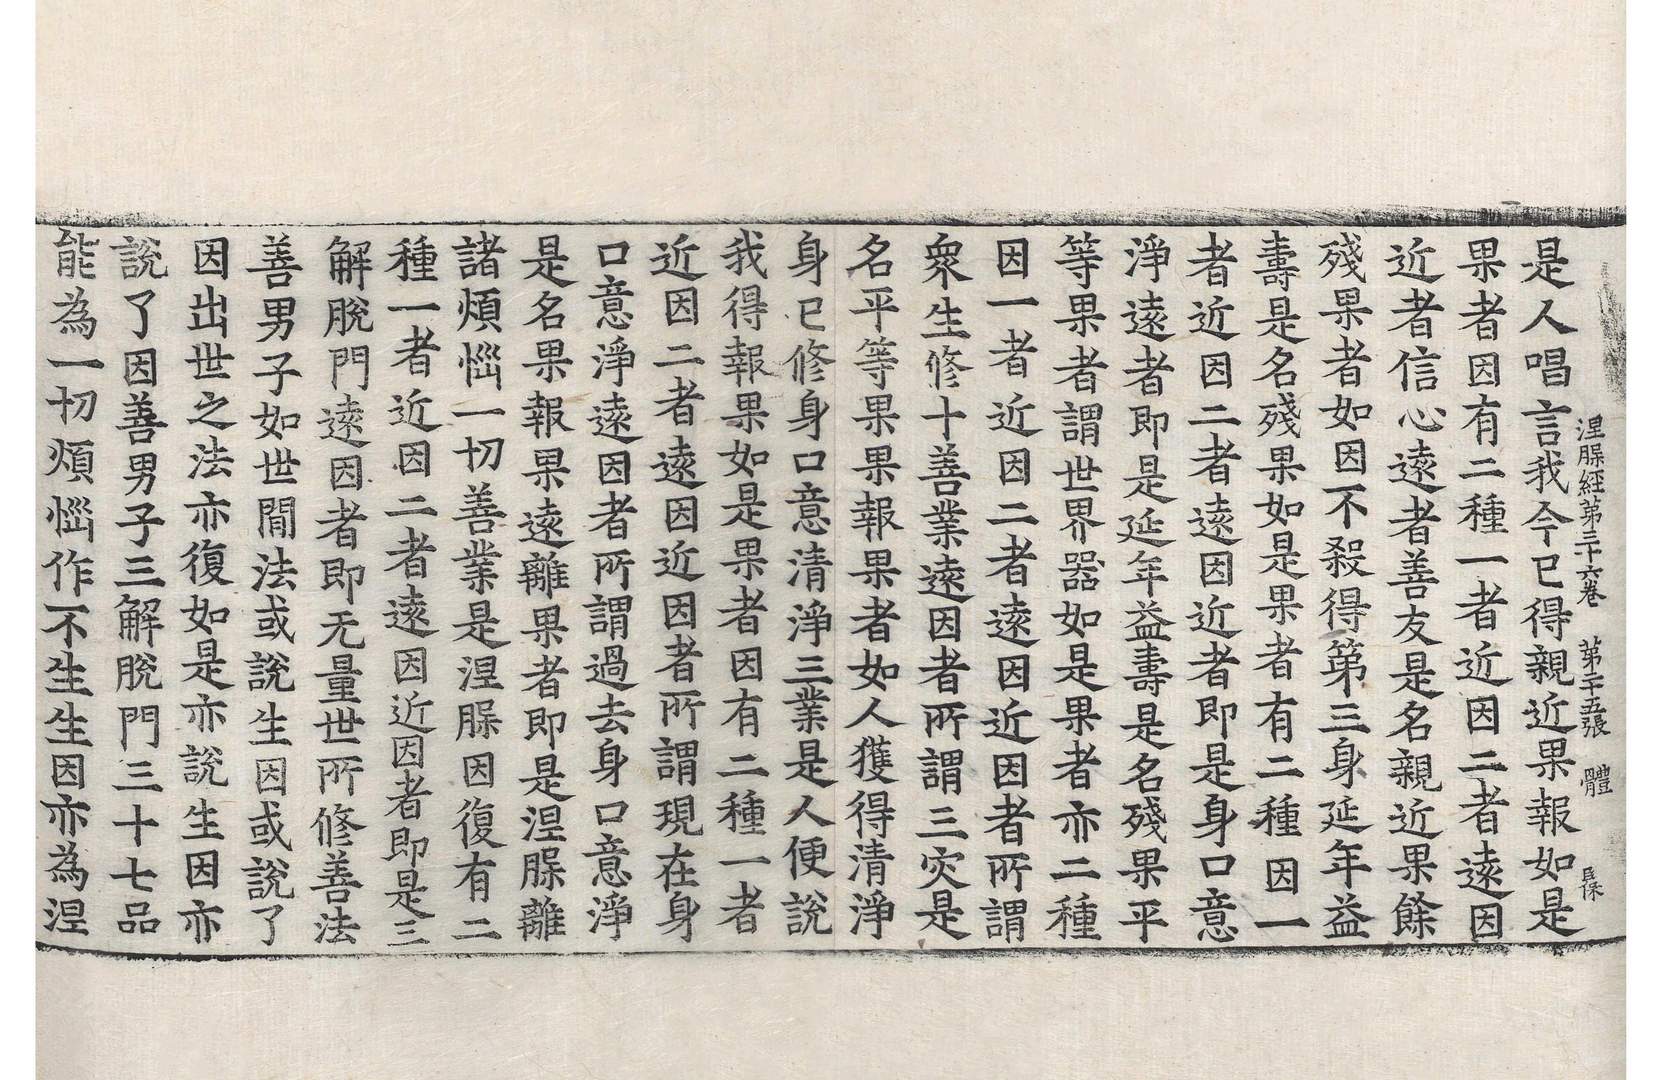 涅脲經第三十六卷　第二十五張　體　𨺚
是人唱言我今已得親近果報如是
果者因有二種一者近因二者遠因
近者信心遠者善友是名親近果餘
殘果者如因不殺得第三身延年益
壽是名殘果如是果者有二種因一
者近因二者遠因近者即是身口意
淨遠者即是延年益壽是名殘果平
等果者謂世界器如是果者亦二種
因一者近因二者遠因近因者所謂
衆生修十善業遠因者所謂三灾是
名平等果果報果者如人獲得清淨
身已修身口意清淨三業是人便說
我得報果如是果者因有二種一者
近因二者遠因近因者所謂現在身
口意淨遠因者所謂過去身口意淨
是名果報果遠離果者即是涅脲離
諸煩惱一切善業是涅脲因復有二
種一者近因二者遠因近因者即是三
解脫門遠因者即无量世所修善法
善男子如世閒法或說生因或說了
因出世之法亦復如是亦說生因亦
說了因善男子三解脫門三十七品
能為一切煩惱作不生生因亦為涅